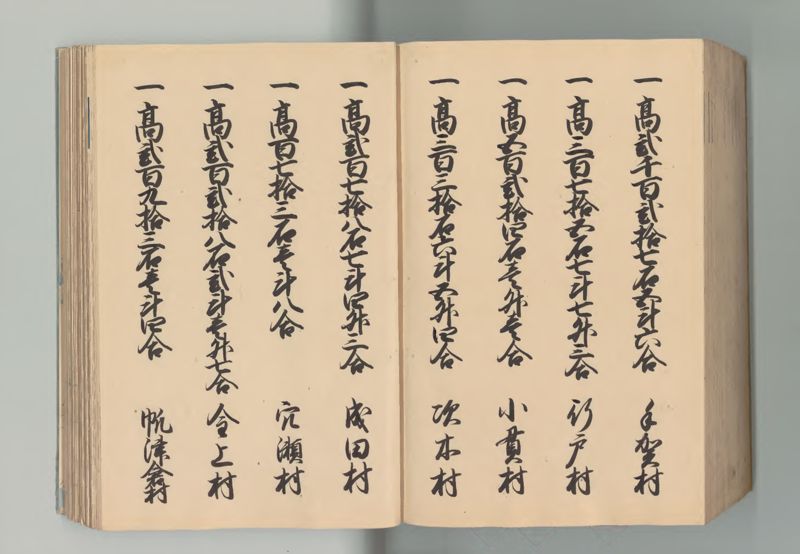 一高弐千百弐拾七石五斗六合 手賀村
一高三百七拾五石七斗七升三合 行戸村
一高五百弐拾四石壱升壱合 小貫村
一高三百三拾石六斗五升四合 次木村
一高弐百七拾八石七斗四升三合 成田村
一高百七拾三石壱斗八合 穴瀬村
一高弐百弐拾八石弐斗壱升七合 村
一高弐百九拾三石壱斗四合 帆津倉村